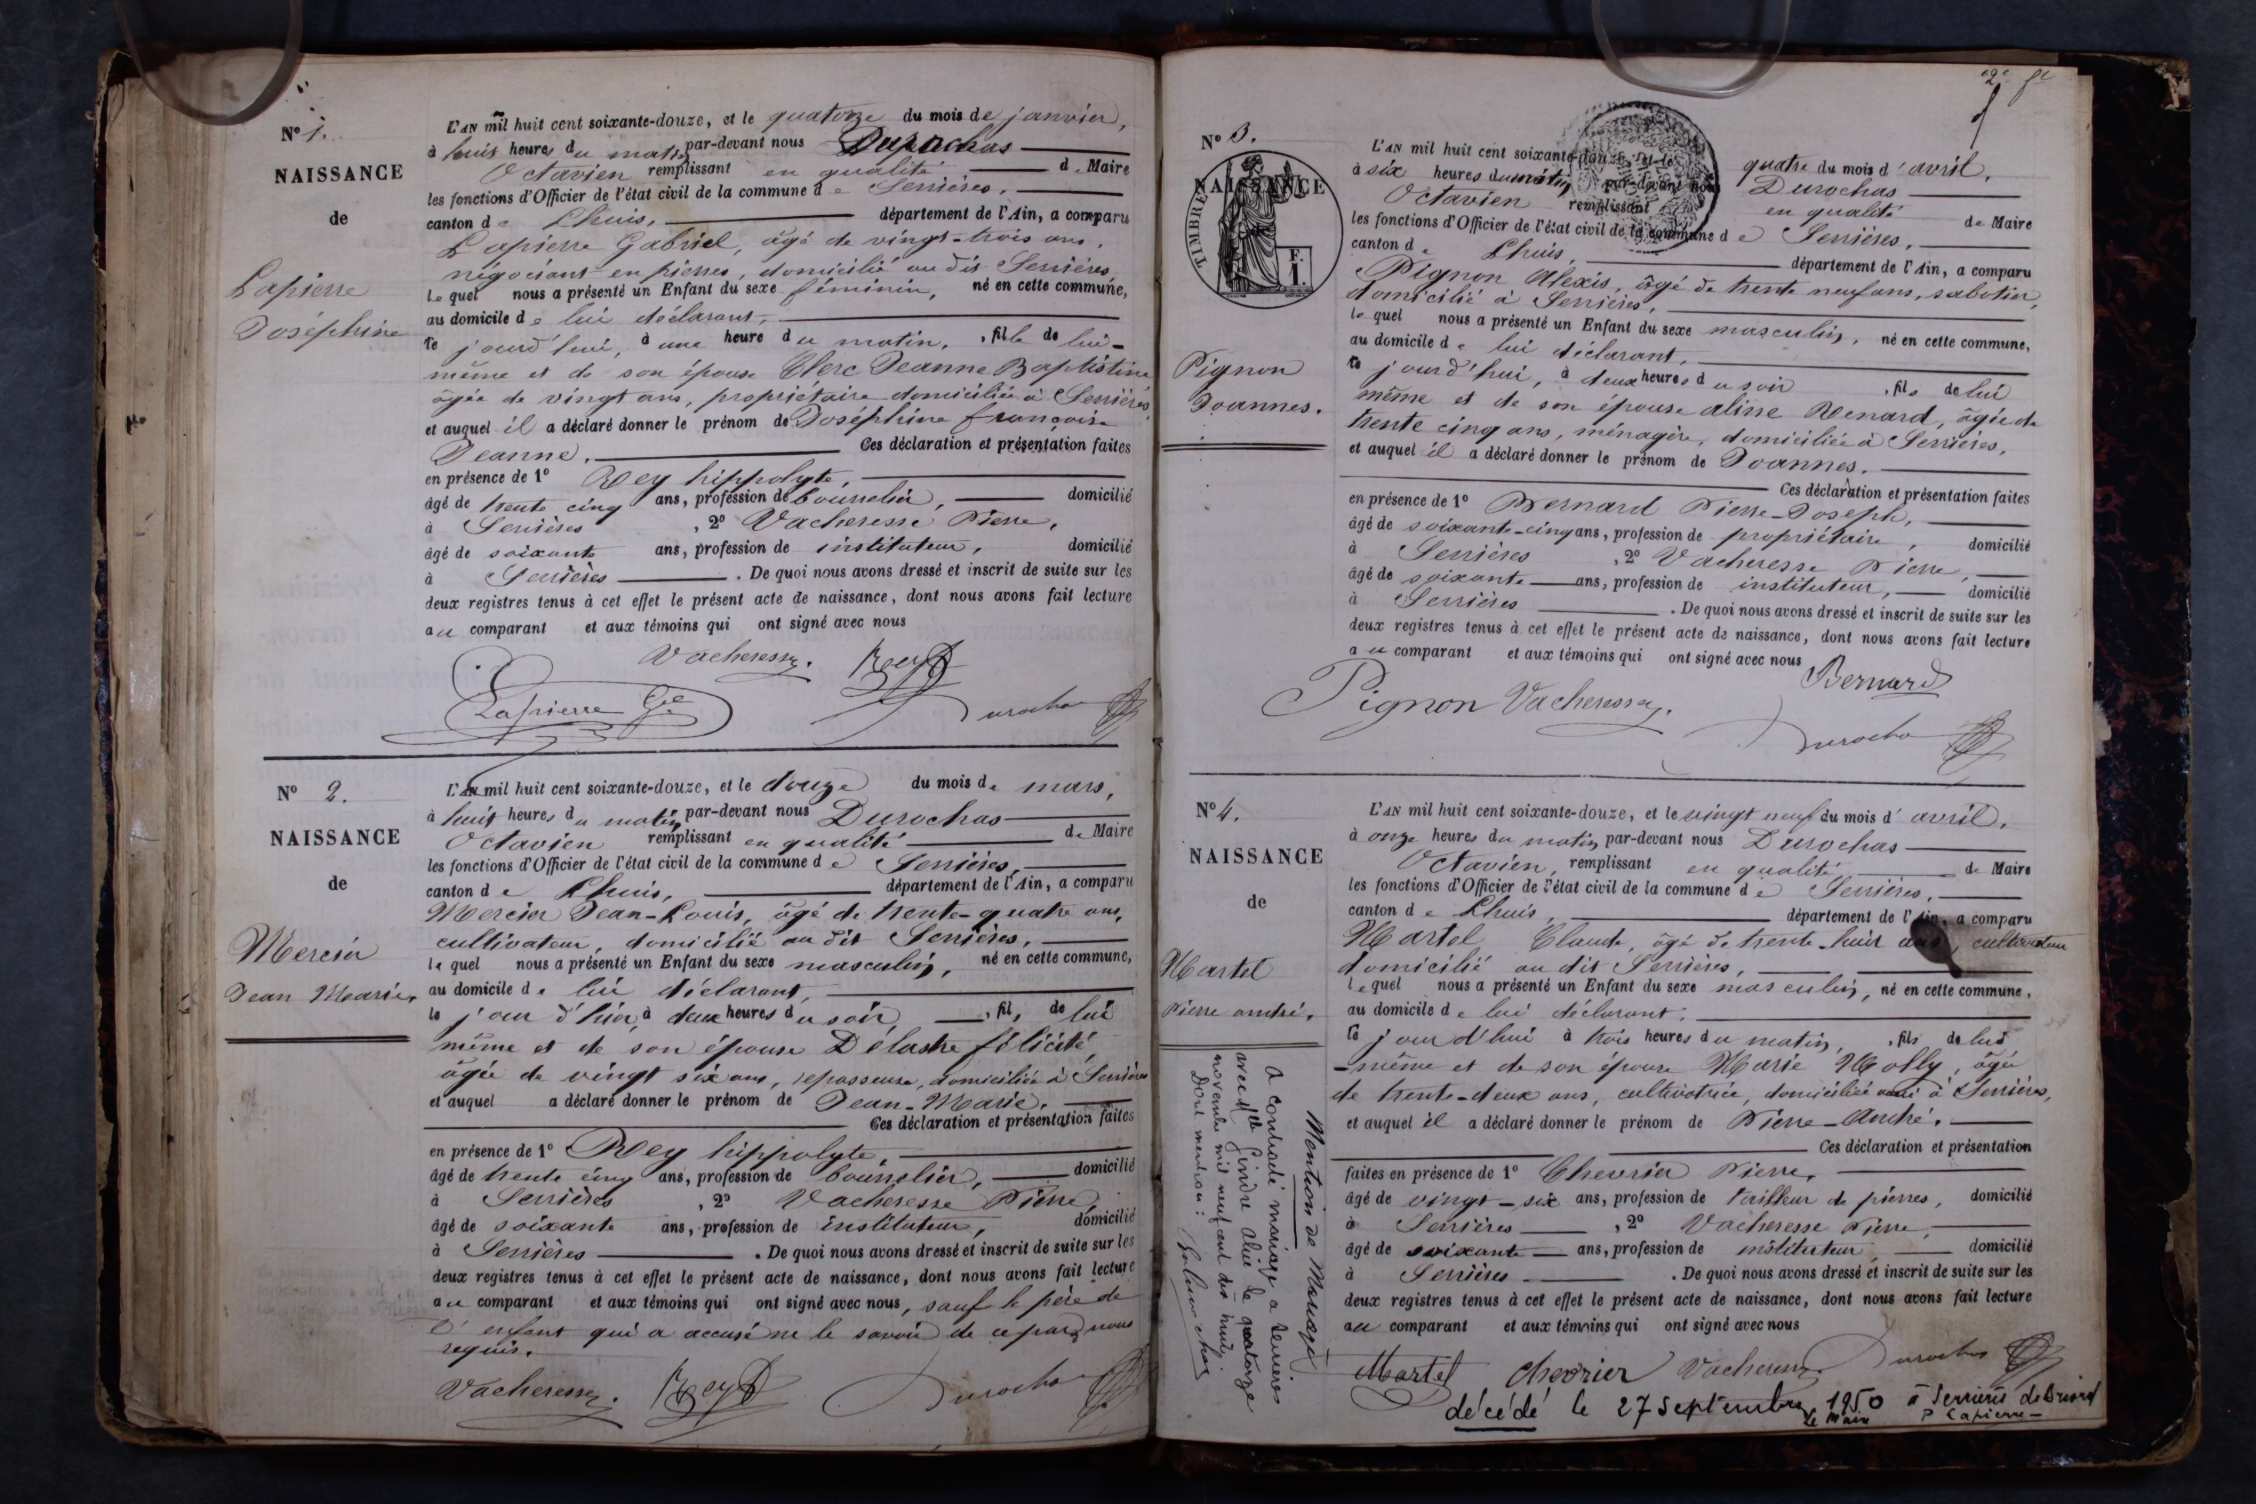 N° 1.
NAISSANCE
de
Lapierre
Joséphine
L'AN mil huit cent soixante-douze, et le quatorze du mois de janvier,
à huit heures du matin par-devant nous Durochas
Octavien remplissant en qualité de Maire
les fonctions d'Officier de l'état civil de la commune de Serrières.
canton de Lhuis, département de l'Ain, a comparu
Lapierre Gabriel, âgé de vingt-trois ans,
négociant en pierres, domicilié au dit Serrières,
lequel nous a présenté un Enfant du sexe féminin, né en cette commune,
au domicile de lui déclarant,
le jourd'hui, à une heure du matin, fille de lui-
même et de son épouse Clerc Jeanne Baptistine
âgée de vingt ans, propriétaire domiciliée à Serrières,
et auquel il a déclaré donner le prénom de Joséphine françoise
Jeanne. Ces déclaration et présentation faites
en présence de 1° Rey hippolyte,
âgé de trente cinq ans, profession de bourrelier, domicilié
à Serrières, 2° Vacheresse Pierre,
âgé de soixante ans, profession de instituteur, domicilié
à Serrières. De quoi nous avons dressé et inscrit de suite sur les
deux registres tenus à cet effet le présent acte de naissance, dont nous avons fait lecture
au comparant et aux témoins qui ont signé avec nous
Vacheresse. Rey
Lapierre Gel Durochas
N° 2.
NAISSANCE
de
Mercier
Jean Marie.
L'AN mil huit cent soixante-douze, et le douze du mois de mars,
à huit heures du matin par-devant nous Durochas
Octavien remplissant en qualité de Maire
les fonctions d'Officier de l'état civil de la commune de Serrières,
canton de Lhuis, département de l'Ain, a comparu
Mercier Jean-Louis, âgé de trente-quatre ans,
cultivateur, domicilié au dit Serrières,
lequel nous a présenté un Enfant du sexe masculin, né en cette commune,
au domicile de lui déclarant,
le jour d'hier, à deux heures du soir, fils de lui
même et de son épouse Délastre félicité,
âgée de vingt six ans, repasseuse, domiciliée à Serrières
et auquel a déclaré donner le prénom de Jean-Marie.
Ces déclaration et présentation faites
en présence de 1° Rey hippolyte,
âgé de trente cinq ans, profession de bourrelier, domicilié
à Serrières, 2° Vacheresse Pierre,
âgé de soixante ans, profession de instituteur, domicilié
à Serrières. De quoi nous avons dressé et inscrit de suite sur les
deux registres tenus à cet effet le présent acte de naissance, dont nous avons fait lecture
au comparant et aux témoins qui ont signé avec nous, sauf le père de
l'enfant qui a accusé ne le savoir de ce par nous
requis.
Vacheresse. Rey Durochas
2e
N° 3.
NAISSANCE
TIMBRE
F.
1.
Pignon
Joannes.
L'AN mil huit cent soixante-douze, et le quatre du mois d'avril,
à six heures du matin par-devant nous Durochas
Octavien remplissant en qualité de Maire
les fonctions d'Officier de l'état civil de la commune de Serrières,
canton de Lhuis, département de l'Ain, a comparu
Pignon Alexis, âgé de trente neuf ans, sabotier,
domicilié à Serrières,
lequel nous a présenté un Enfant du sexe masculin, né en cette commune,
au domicile de lui déclarant,
le jourd'hui, à deux heures du soir, fils de lui
même et de son épouse aline Renard, âgée de
trente cinq ans, ménagère, domiciliée à Serrières,
et auquel il a déclaré donner le prénom de Joannes.
Ces déclaration et présentation faites
en présence de 1° Bernard Pierre-Joseph,
âgé de soixante-cinq ans, profession de propriétaire, domicilié
à Serrières, 2° Vacheresse Pierre,
âgé de soixante ans, profession de instituteur, domicilié
à Serrières. De quoi nous avons dressé et inscrit de suite sur les
deux registres tenus à cet effet le présent acte de naissance, dont nous avons fait lecture
au comparant et aux témoins qui ont signé avec nous
Bernard
Pignon Vacheresse.
Durochas
N° 4.
NAISSANCE
de
Martel
Pierre andré.
Mention de Mariage
A contracté mariage à Serrières
avec Mlle Gindre Alice le quatorze
novembre mil neuf cent dix huit.
Dont mention:
L'AN mil huit cent soixante-douze, et le vingt neuf du mois d'avril,
à onze heures du matin par-devant nous Durochas
Octavien, remplissant en qualité de Maire
les fonctions d'Officier de l'état civil de la commune de Serrières,
canton de Lhuis, département de l'Ain, a comparu
Martel Claude, âgé de trente-huit ans, cultivateur
domicilié au dit Serrières,
lequel nous a présenté un Enfant du sexe masculin, né en cette commune,
au domicile de lui déclarant,
le jourd'hui à trois heures du matin, fils de lui
-même et de son épouse Marie Molly, âgée
de trente-deux ans, cultivatrice, domiciliée à Serrières,
et auquel il a déclaré donner le prénom de Pierre-André.
Ces déclaration et présentation
faites en présence de 1° Chevrier Pierre,
âgé de vingt-six ans, profession de tailleur de pierres, domicilié
à Serrières, 2° Vacheresse Pierre,
âgé de soixante ans, profession de instituteur, domicilié
à Serrières. De quoi nous avons dressé et inscrit de suite sur les
deux registres tenus à cet effet le présent acte de naissance, dont nous avons fait lecture
au comparant et aux témoins qui ont signé avec nous
Martel Chevrier Vacheresse Durochas
décédé le 27 Septembre 1950 à Serrières de Briord
Le Maire P Lapierre